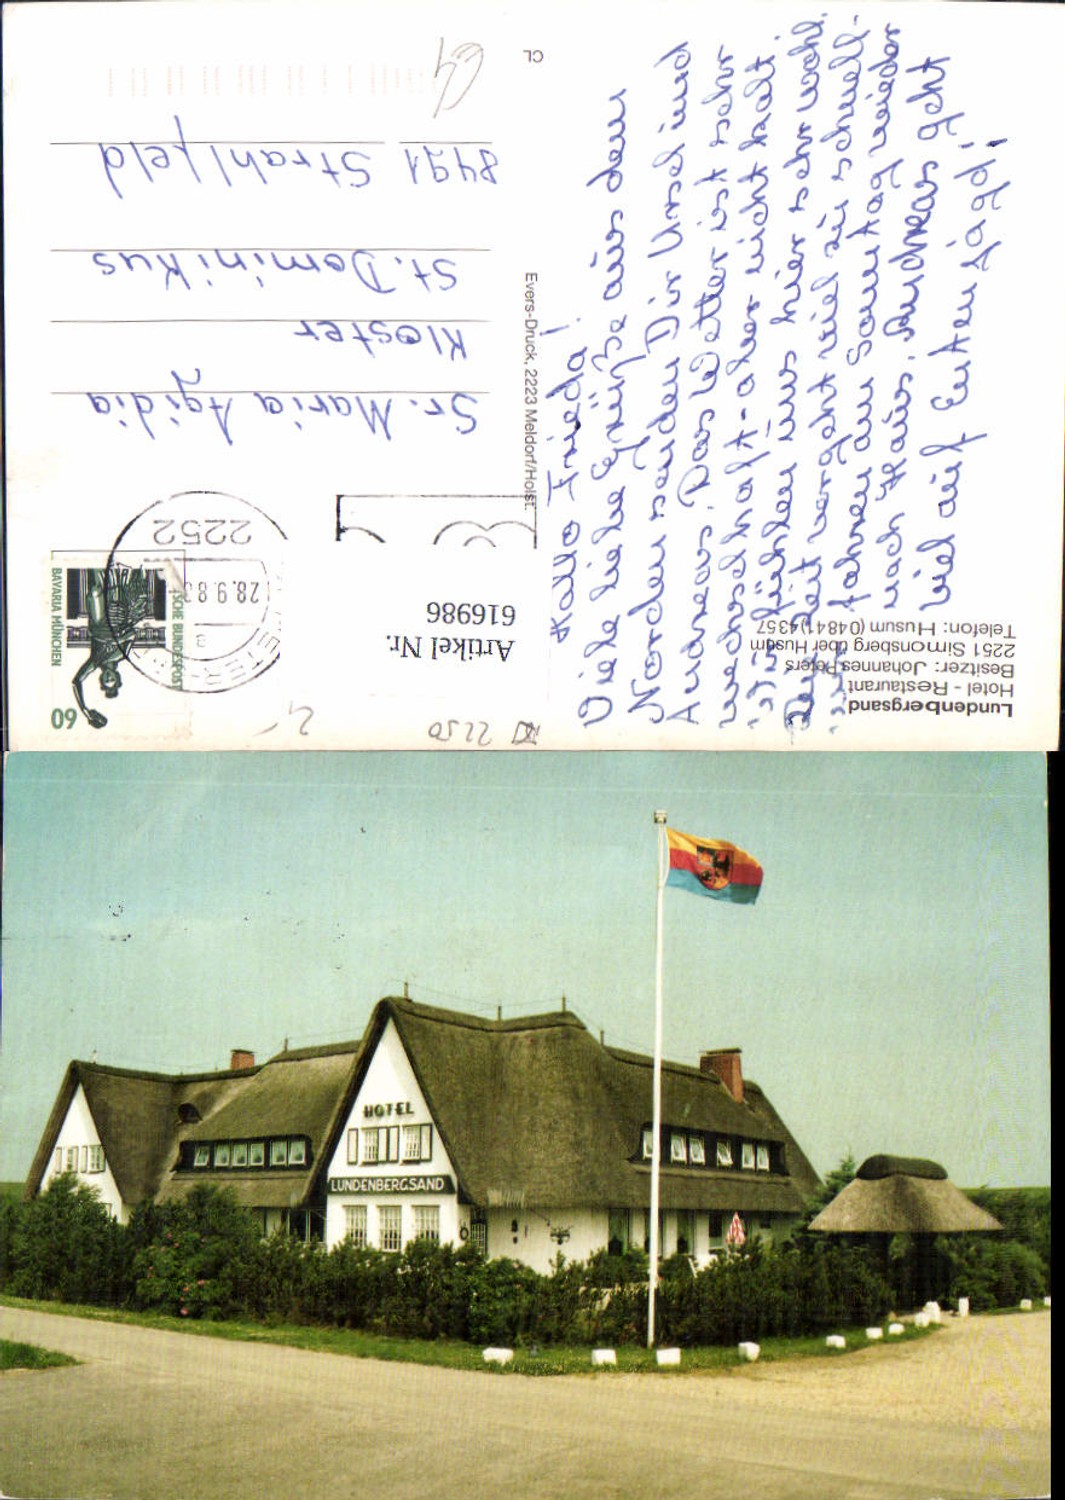 Lundenbergsand
Hotel - Restaurant
Besitzer: Johannes Peters
2251 Simonsberg über Husum
Telefon: Husum (04841) 4357
Hallo Frieda!
Viele liebe Grüße aus dem
Norden senden Dir Ursel und
Andreas. Das Wetter ist sehr
wechselhaft - aber nicht kalt.
Wir fühlen uns hier sehr wohl.
Die Zeit vergeht viel zu schnell -
wir fahren am Sonntag wieder
nach Haus. Andreas geht
viel auf Entenjagd!
Evers-Druck, 2223 Meldorf/Holst.
CL
Artikel Nr.
616986
2250
60
DEUTSCHE BUNDESPOST
BAVARIA MÜNCHEN
2252
28.9.8
a
Sr. Maria Agidia
Kloster
St. Dominikus
8491 Strahlfeld
HOTEL
LUNDENBERGSAND